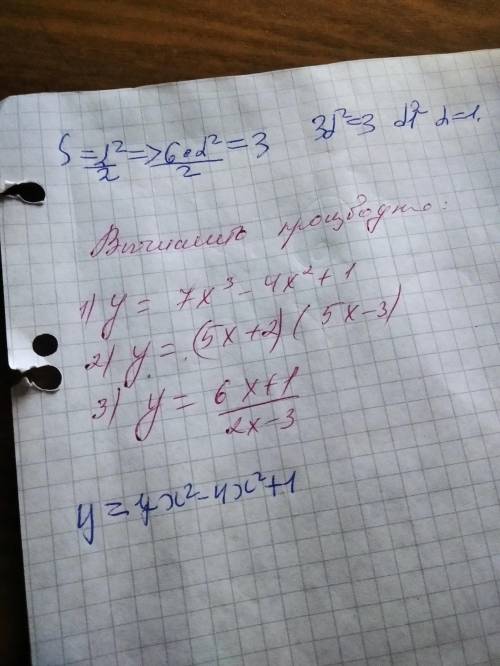 S = d²/2 => 6·d²/2 = 3 3d²=3 d²= d=1.
Вычислить производную:
1) y = 7x³ - 4x² + 1
2) y = (5x+2)(5x-3)
3) y = (6x+1)/(2x-3)
y = 7x² - 4x² + 1